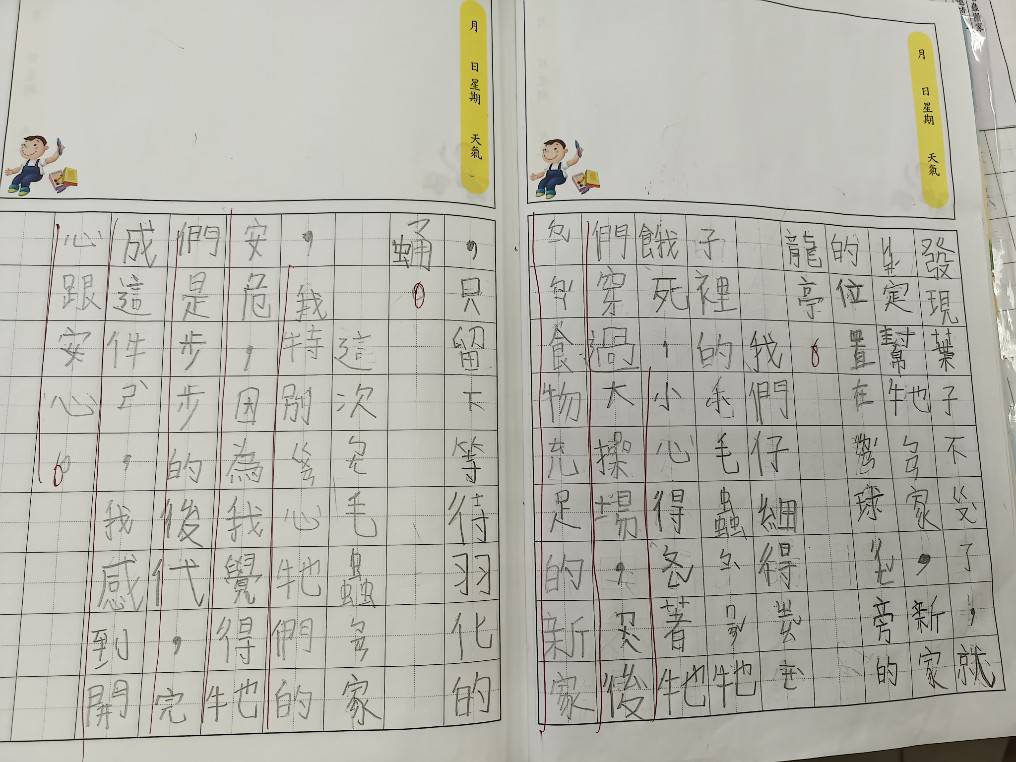 月 日 星期 天氣
發現葉子不了，就
定幫牠家，新家
的位置在球旁的
龍亭。
我們仔細得
子裡的毛毛蟲牠
餓死，小心得著牠
們穿過大操場，後
食物充足的新家
月 日 星期 天氣
，只留下等待羽化的
蛹。
這次毛蟲家
，我特別心牠們的
安危，因為我覺得牠
們是步步的後代，完
成這件，我感到開
心跟安心。